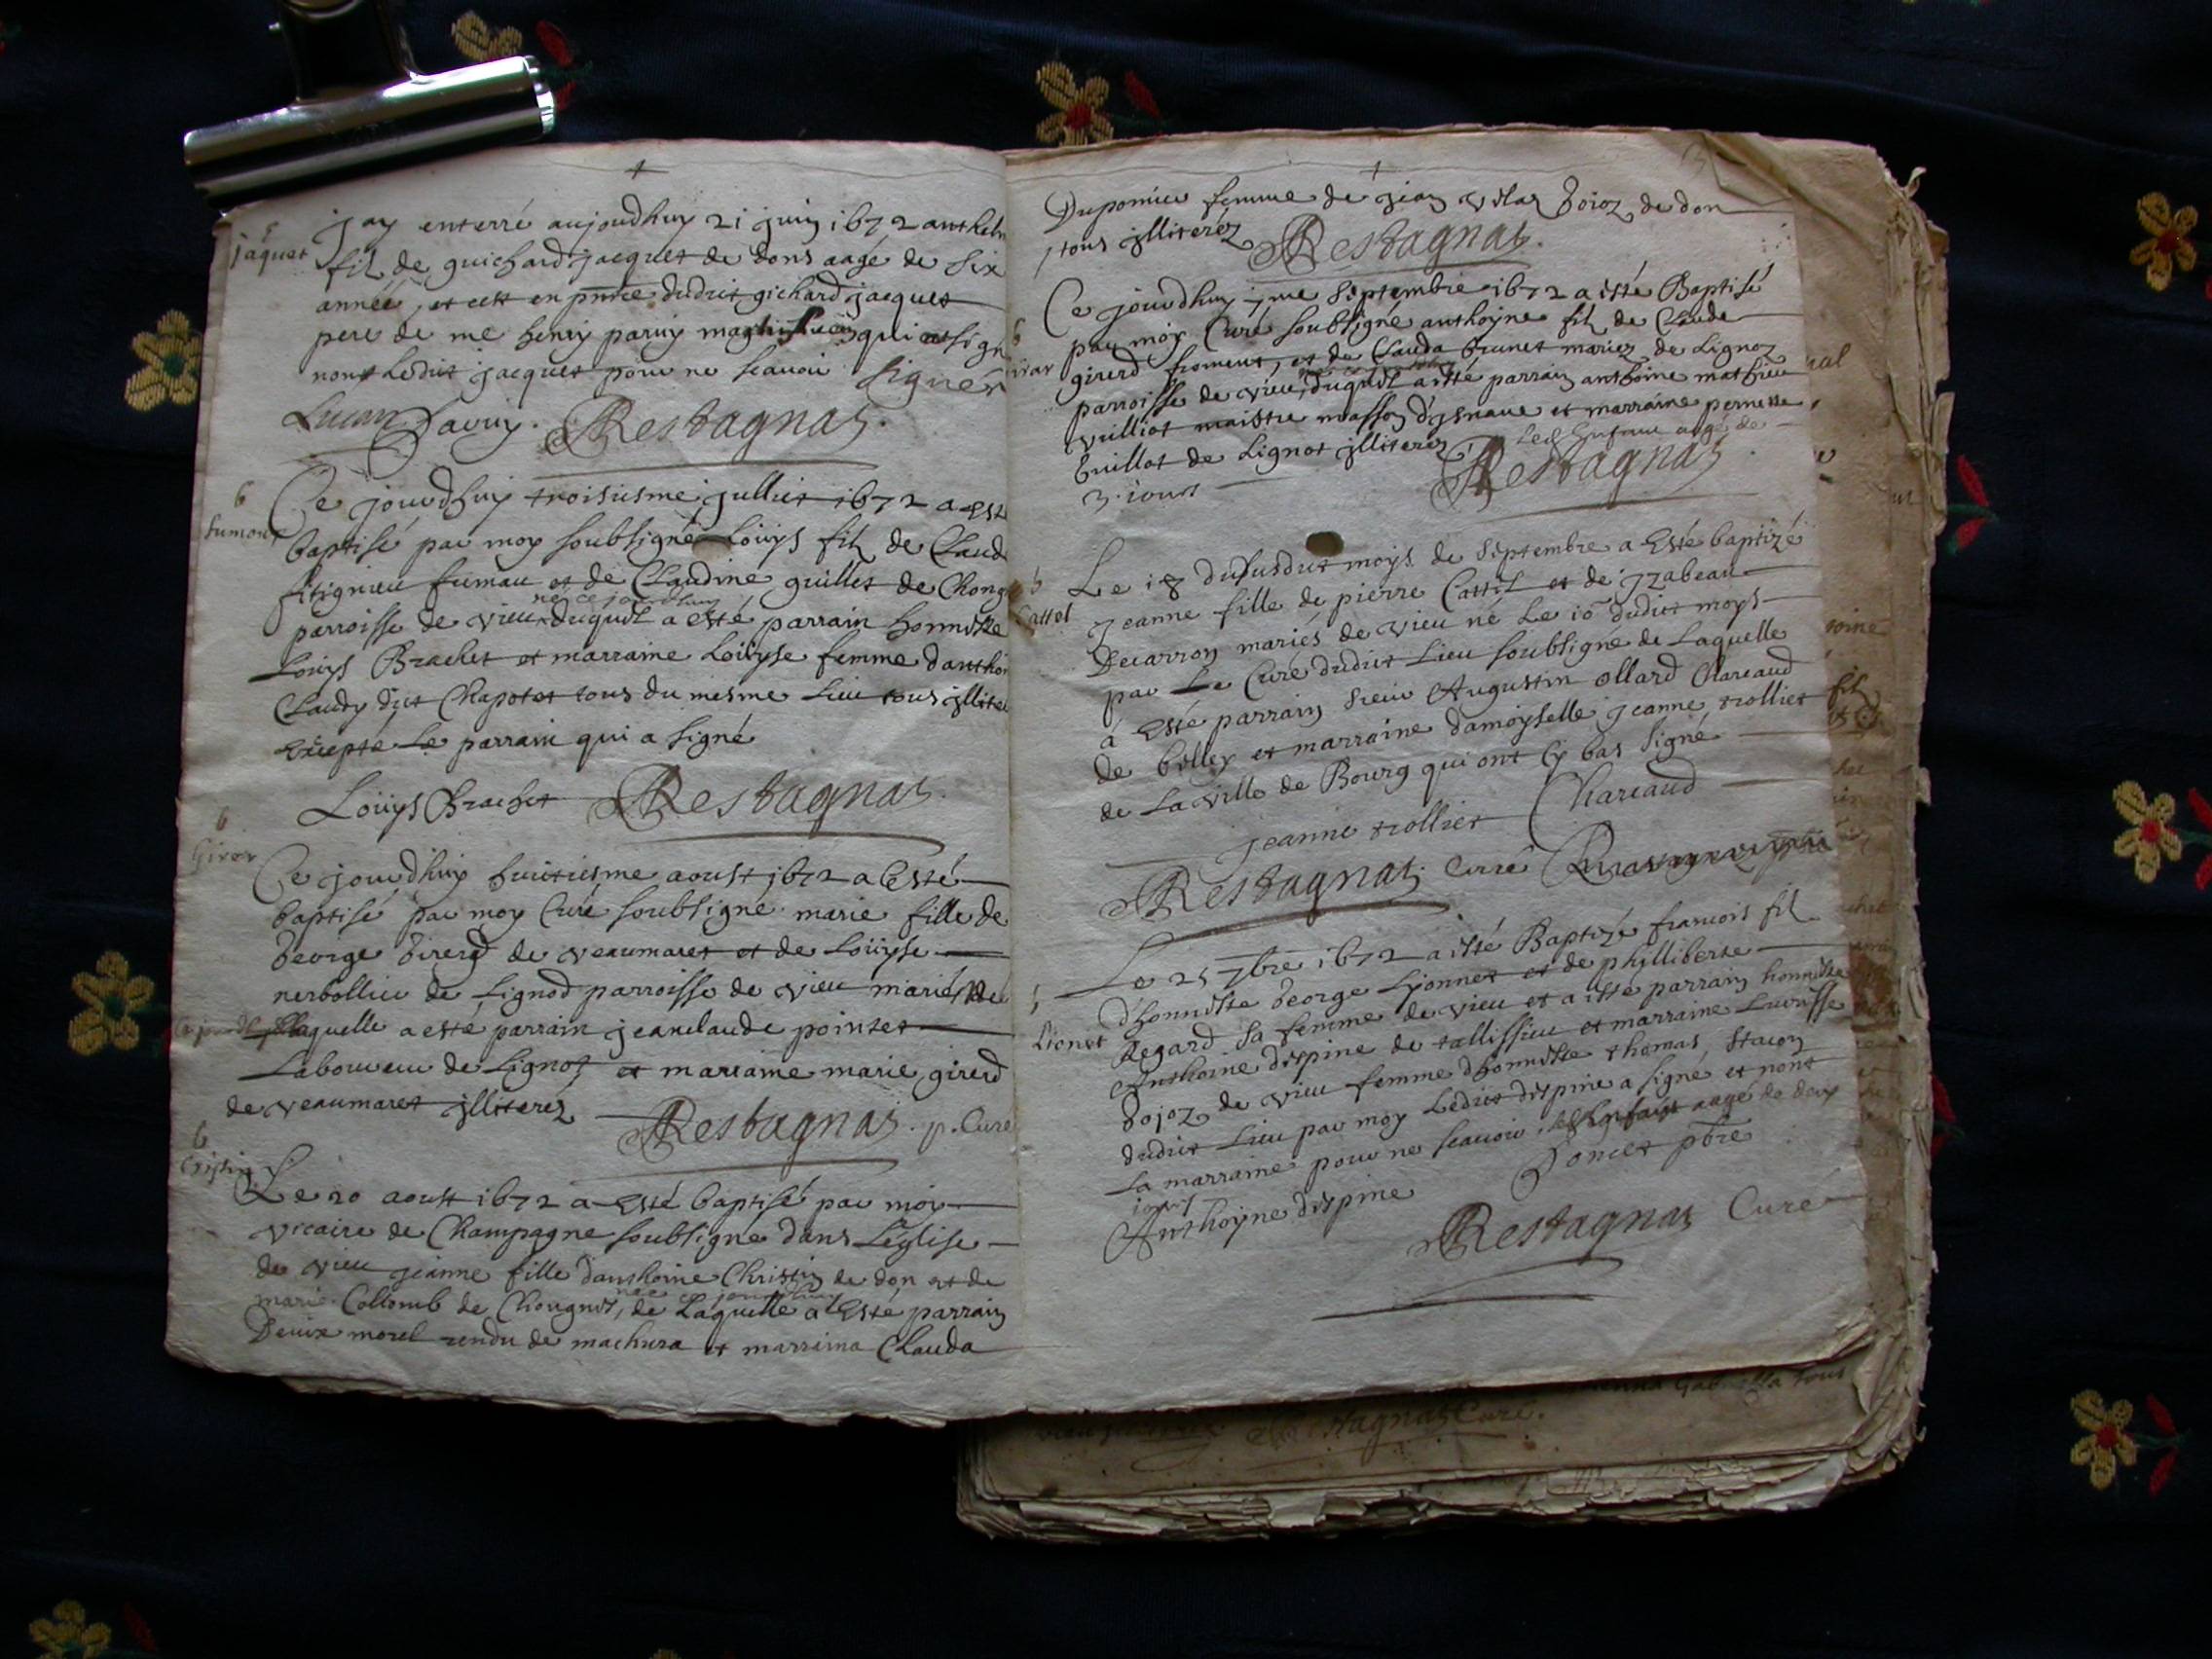 jay enterré aujoudhuy 21 juin 1672 anthelm
jaquet
filz de guichard jacquet de dons aagé de six
année, et cest en pntce dudict gichard jacquet
pere de me henry paruy qui a sign
non ledict jacquet pour ne scauoir signer
Paruy. Restagnat.
6
fumoux
Ce jourdhuy troisiesme jullict 1672 a esté
baptisé par moy soubsigné Loüys filz de Claud
fitignieu fumau et de Claudine guillet de Chong
né ce jourdhuy
parroisse de vieu duquel a esté parrain honneste
Loüys Brachet et marraine Loüyse femme danthoi
Claudy dict Chapotet tous du mesme lieu tous jllite
excepté le parrain qui a signé
Loüys Brachet Restagnat.
6
Girer
Ce jourdhuy huictiesme aoust 1672 a Esté
baptisé par moy Curé soubsigné marie fille de
George Girerd de veaumaret et de Loüyse
nerbollier de Lignod parroisse de vieu mariés
laquelle a esté parrain jeanclaude pointet
Laboureur de Lignoz et marraine marie girerd
de veaumaret jlliterez Restagnat. p. Curé
6
Cristin
Le 20 aoust 1672 a Esté baptisé par moy
vicaire de Champagne soubsigné dans Léglise
de vieu jeanne fille danthoine Christin de don et de
née ce jourdhuy
marie Collomb de Chougnet, de Laquelle a Esté parrain
Deuix morel rendu de machura et marraina Clauda
Duponieu femme de jean vilar Goioz de don
tous jlliteréz Restagnat.
Ce jourdhuy septembre 1672 a esté Baptisé
6
par moy Curé soubsigné anthoyne filz de Claude
girar
girerd froment, et de Clauda brunet mariez de Lignoz
parroisse de vieu, duquel a esté parrain anthoine mathieu
vulliot maistre masson et marraine pernette
Guillot de Lignot jlliteréz Led Enfant agé de
3 iours Restagnat
Le 18 dusudict moys de septembre a Esté baptizé
6
Cattel
Jeanne fille de pierre Cattil et de jzabeau
Decarron mariés de vieu né Le 10 dudict moys
par Le Curé dudict Lieu soubsigné de Laquelle
a Esté parrain sieur Augustin ollard Charcaud
de belley et marraine damoyselle jeanne trolliet
de La ville de Bourg qui ont Cy bas signé
jeanne trolliet Charcaud
Restagnat. Curé
Le 25 7bre 1672 a esté Baptizé francois filz
dhonneste George Lyonnet et de phylliberte
Lionet
Regard sa femme de vieu et a esté parrain honneste
Anthoine despine de tallissieu et marraine
Gojoz de vieu femme dhonneste thomas
dudict Lieu par moy Ledict despine a signé et nont
La marraine pour ne scauoir led Enfant aagé de deux
iours
Anthoyne despine Poncet pbre
Restagnat Curé